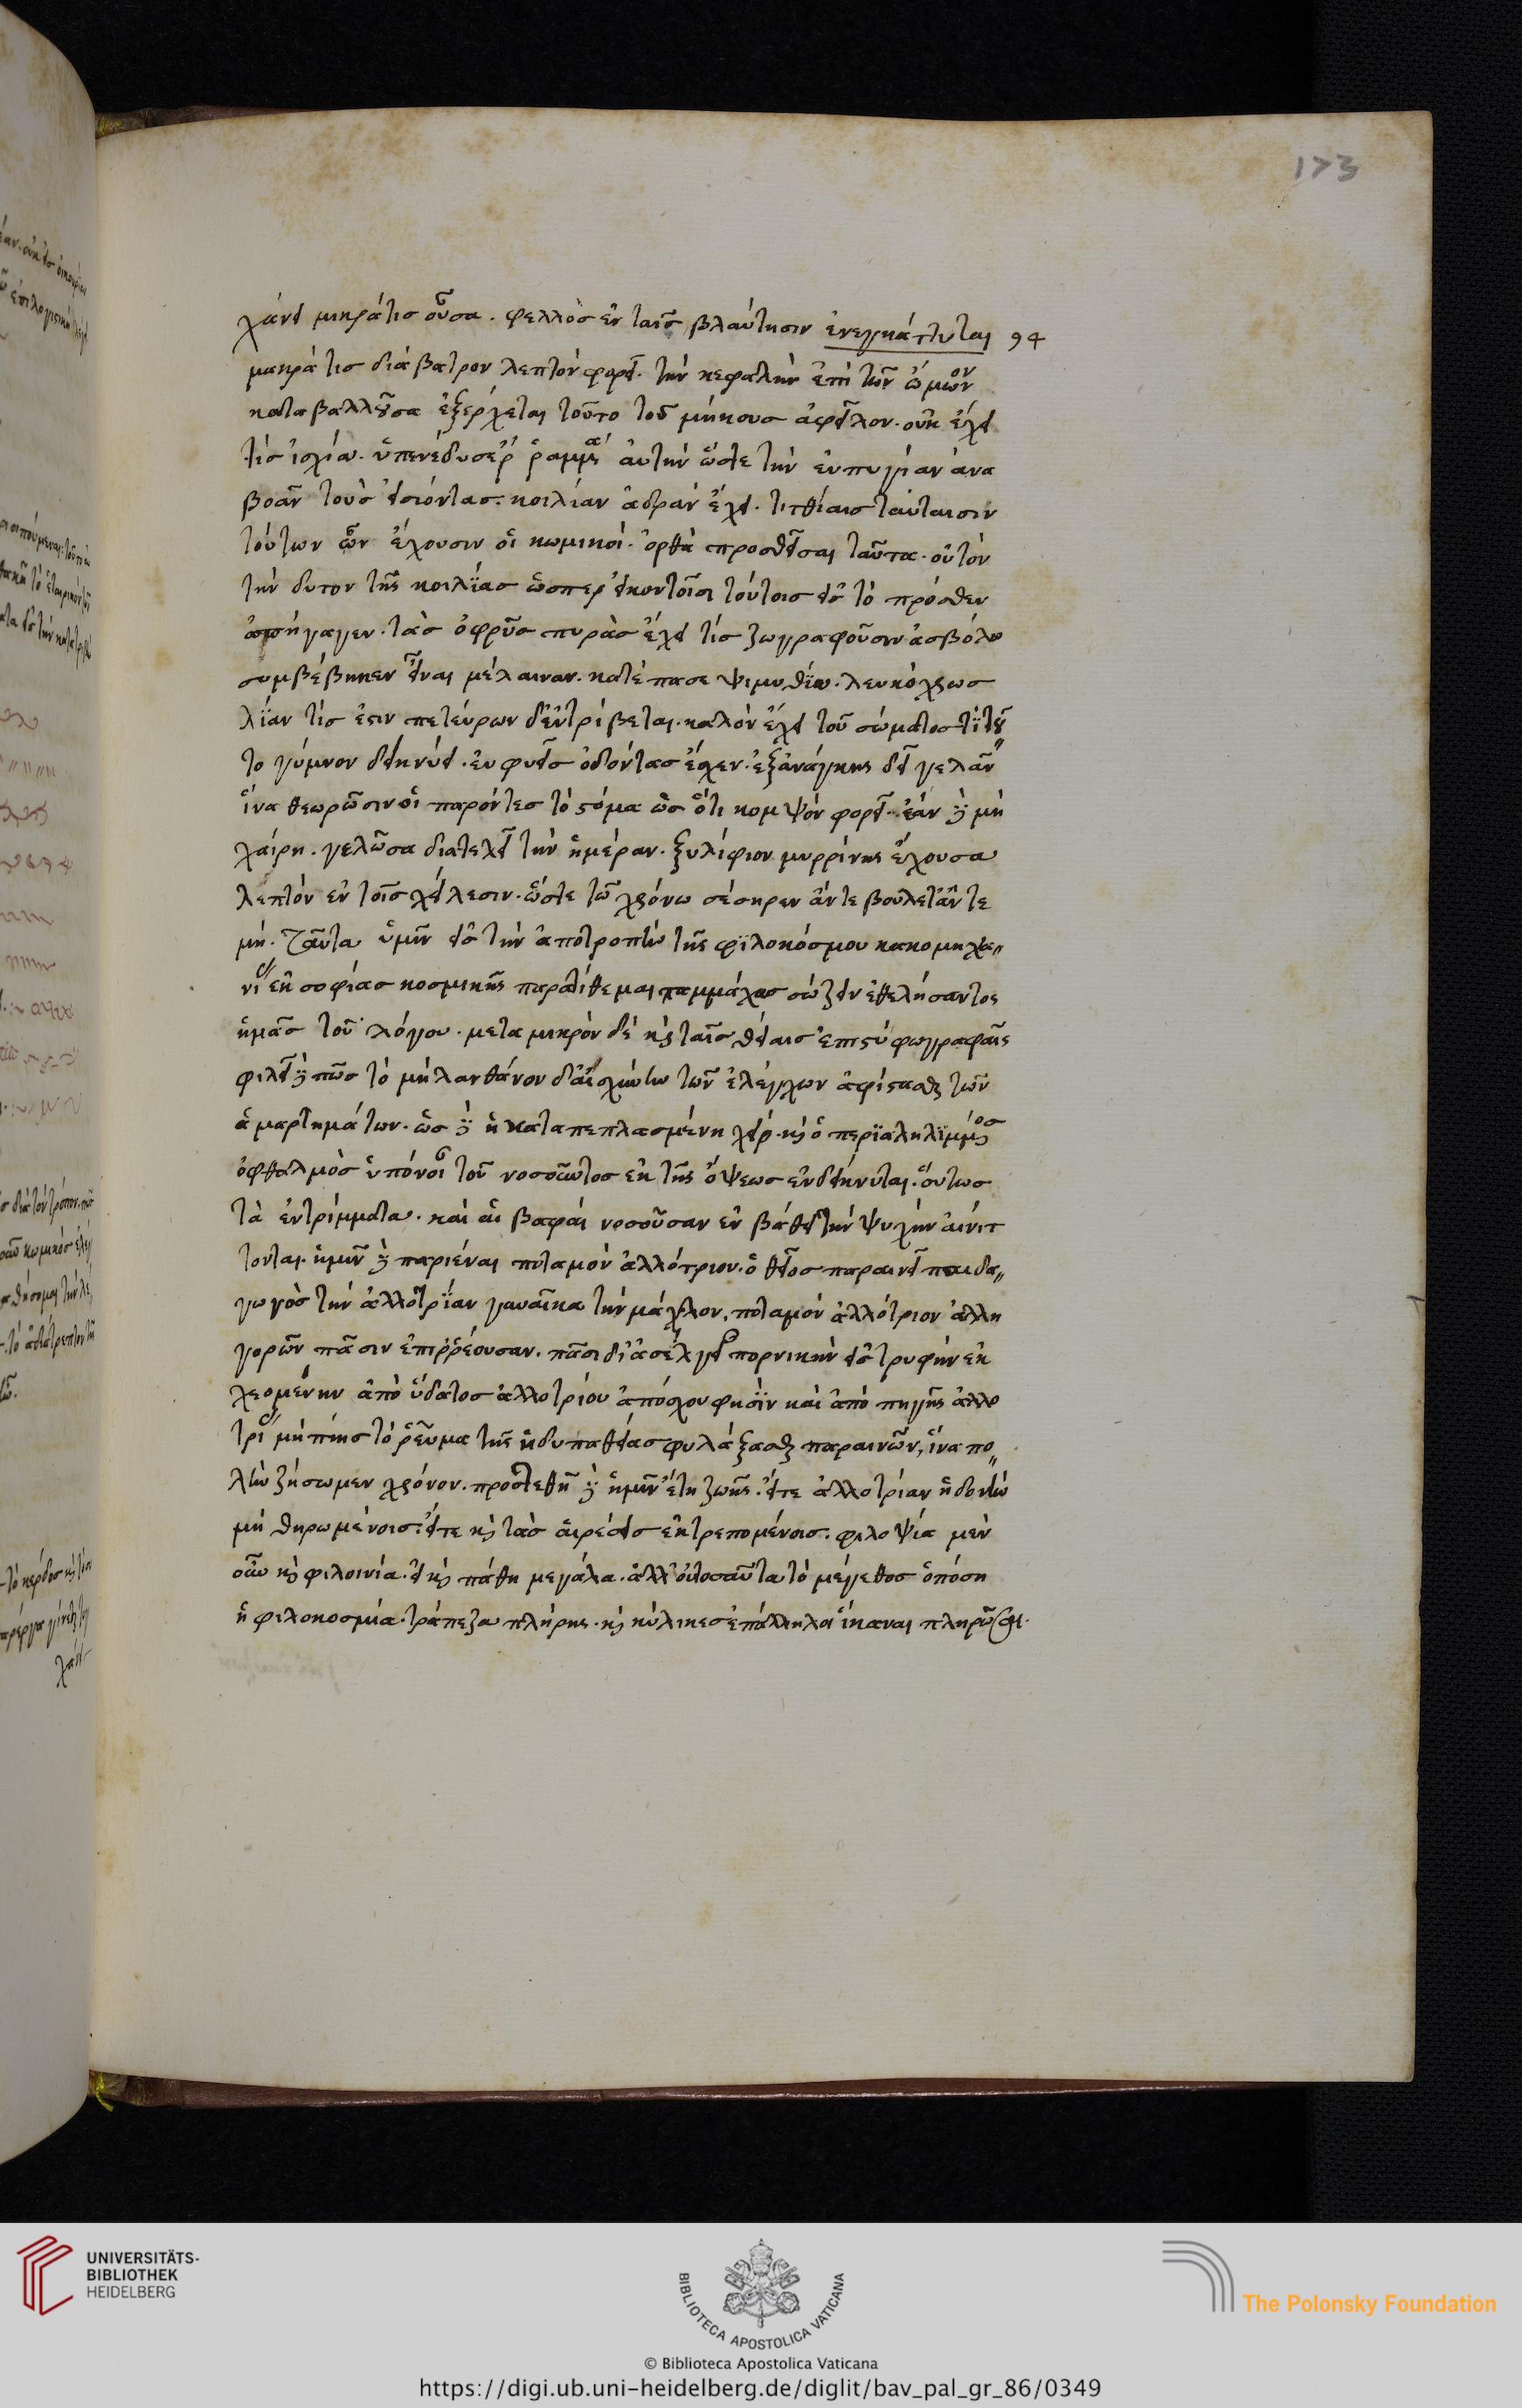 173
χάνει μικρά τις οὖσα. φελλὸς ἐν ταῖς βλαύτησιν ἐνεγκάττυται 94
μακρά τις διάβατρον λεπτὸν φορεῖ. τὴν κεφαλὴν ἐπὶ τῶν ὤμων
καταβαλλοῦσα ἐξέρχεται τοῦτο τοῦ μήκους ἀφεῖλον. οὐκ ἔχει
τίς ἰσχία. ὑπενέδυσεν ῥαμμέ αὐτὴν ὥστε τὴν εὐπυγίαν ἀνα
βοᾶν τοὺς εἰσιόντας. κοιλίαν ἁδρὰν ἔχει. τιτθίαις ταύταισιν
τούτων ὧν ἔχουσιν οἱ κωμικοί. ὀρθὰ προσθεῖσαι ταῦτα. οὕτον
τὴν δυτον τῆς κοιλίας ὥσπερ εἰ κοντοῖσι τούτοις εἰς τὸ πρόσθεν
ἀπήγαγεν. τὰς ὀφρῦς πυρὰς ἔχει τίς ζωγραφοῦσιν ἀσβόλω
συμβέβηκεν εἶναι μέλαιναν. κατέπασε ψιμυθίω. λευκόχρως
λίαν τίς ἐστιν πετεύρων δ' ἐντρίβεται. καλὸν ἔχει τοῦ σώματος τί του
το γύμνον δείκνυει. εὐφυεῖς ὀδόντας ἔσχεν. ἐξανάγκης δεῖ γελᾶν
ἵνα θεωρῶσιν οἱ παρόντες τὸ στόμα ὡς ὅτι κομψὸν φορεῖ. ἐὰν δὲ μὴ
χαίρη. γελῶσα διατελεῖ τὴν ἡμέραν. ξυλίφιον μυρρίνης ἔχουσα
λεπτὸν ἐν τοῖς χείλεσιν. ὥστε τῶ χρόνω σέσηρεν ἄντε βούλετ' ἄν τε
μή. Ταῦτα ὑμῖν εἰς τὴν ἀποτροπὴν τῆς φιλοκόσμου κακομηχα
νί ἐκ σοφίας κοσμικῆς παρατίθεμαι παμμάχως σώζειν ἐθελήσαντος
ἡμᾶς τοῦ λόγου. μετα μικρὸν δὲ καὶ ταῖς θείαις ἐπιστύφω γραφαῖς
φιλεῖ δέ πως τὸ μὴ λανθάνον δι' αἰσχύνην τῶν ἐλέγχων ἀφίστασθαι τῶν
ἁμαρτημάτων. ὡς δὲ ἡ καταπεπλασμένη χείρ. καὶ ὁ περιαληλιμμένος
ὀφθαλμὸς ὑπόνοι τοῦ νοσοῦντος ἐκ τῆς ὄψεως ἐνδείκνυται. οὕτως
τὰ ἐντρίμματα. καὶ αἱ βαφαὶ νοσοῦσαν ἐν βάθει τὴν ψυχὴν αἰνίτ
τονται. ἡμῖν δὲ παριέναι ποταμὸν ἀλλότριον. ὁ θεῖος παραινεῖ παιδα
γωγὸς τὴν ἀλλοτρίαν γυναῖκα τὴν μάχλον. ποταμὸν ἀλλότριον ἀλλη
γορῶν πᾶσιν ἐπιρρέουσαν. πᾶσι δι' ἀσέλγει πορνικὴν εἰς τρυφὴν ἐκ
χεομένην ἀπὸ ὕδατος ἀλλοτρίου ἀπόσχου φησὶν καὶ ἀπὸ πηγῆς ἀλλο
τρί μὴ πίης τὸ ῥεῦμα τῆς ἡδυπαθείας φυλάξασθαι παραινῶν, ἵνα πο
λὺν ζήσωμεν χρόνον. προστεθῆ δὲ ἡμῖν ἔτη ζωῆς. εἴτε ἀλλοτρίαν ἡδονὴν
μὴ θηρωμένοις. εἴτε καὶ τὰς αἱρέσεις ἐκτρεπομένοις. φιλοψία μὲν
οὖν καὶ φιλοινία. εἰ καὶ πάθη μεγάλα. ἀλλ' οὐ τοσαῦτα τὸ μέγεθος ὁπόση
ἡ φιλοκοσμία. τράπεζα πλήρης. καὶ κύλικες ἐπάλληλοι ἱκαναι πληρῶσαι.
UNIVERSITÄTS-
BIBLIOTHEK
HEIDELBERG
BIBLIOTECA APOSTOLICA VATICANA
The Polonsky Foundation
© Biblioteca Apostolica Vaticana
https://digi.ub.uni-heidelberg.de/diglit/bav_pal_gr_86/0349